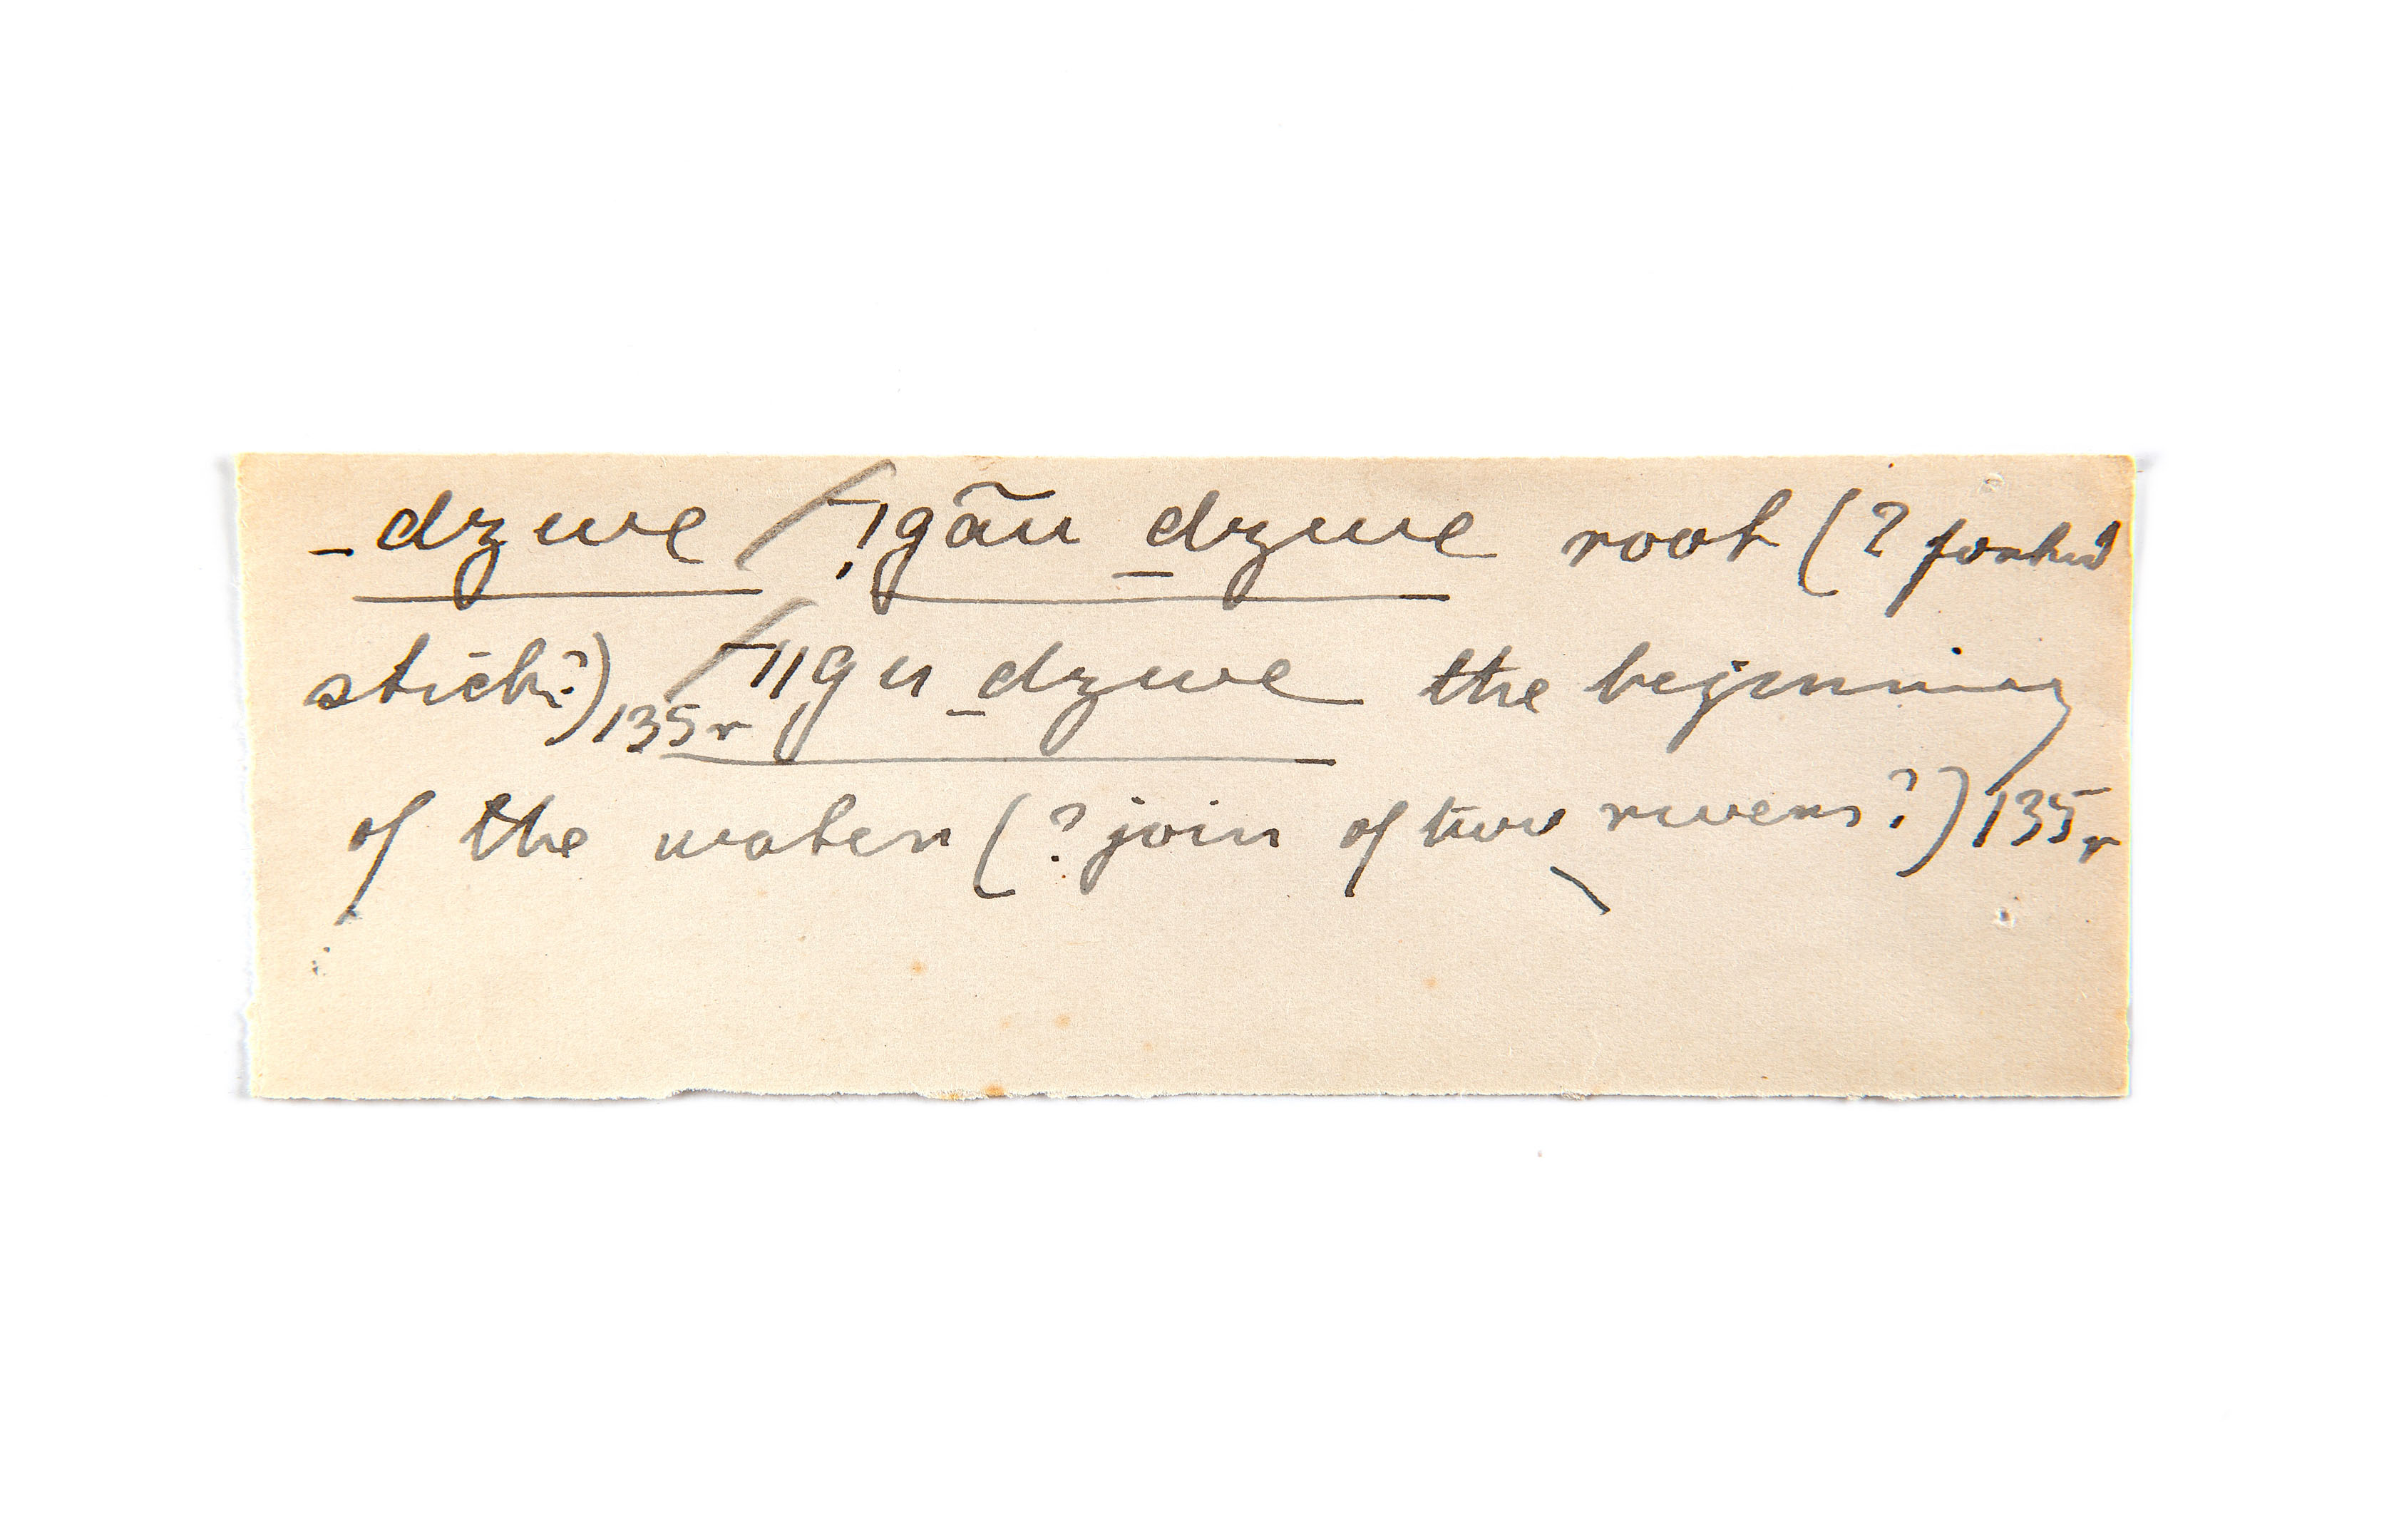 _dzwe / ⁻!gãu _dzwe root (? forked
stick?) 135r / ⁻ǁgu _dzwe the beginning
of the water (? join of two rivers?) 135r